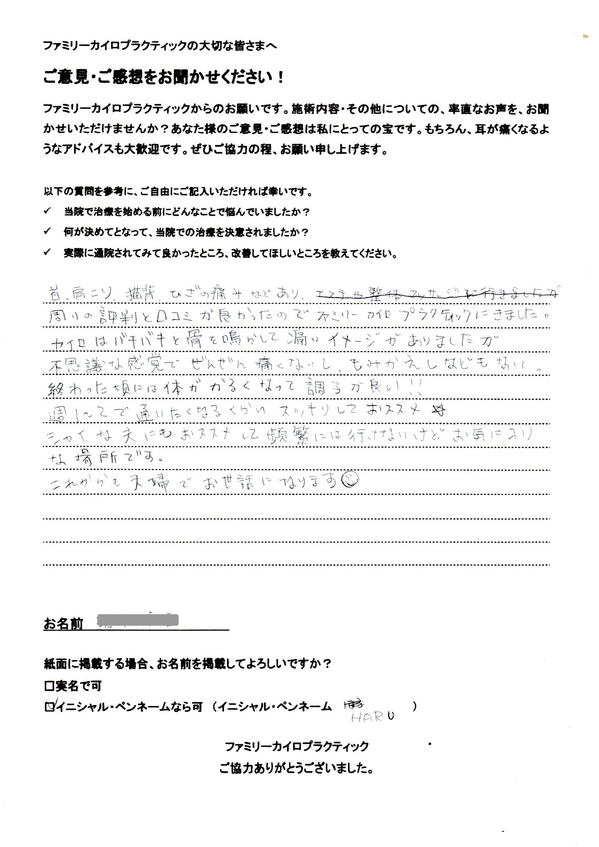 ファミリーカイロプラクティックの大切な皆さまへ
ご意見・ご感想をお聞かせください！
ファミリーカイロプラクティックからのお願いです。施術内容・その他についての、率直なお声を、お聞
かせいただけませんか？あなた様のご意見・ご感想は私にとっての宝です。もちろん、耳が痛くなるよ
うなアドバイスも大歓迎です。ぜひご協力の程、お願い申し上げます。
以下の質問を参考に、ご自由にご記入いただければ幸いです。
✓ 当院で治療を始める前にどんなことで悩んでいましたか？
✓ 何が決めてとなって、当院での治療を決意されましたか？
✓ 実際に通院されてみて良かったところ、改善してほしいところを教えてください。
首、肩こり、猫背 ひざの痛みなどあり、エステや整体マッサージに行きましたが
周りの評判と口コミが良かったのでファミリーカイロプラクティックにきました。
カイロはバキバキと骨を鳴らして痛いイメージがありましたが
不思議な感覚でぜんぜん痛くないし、もみかえしなどもない。
終わった頃には体がかるくなって調子が良い!!
週1〜2で通いたくなるくらいスッキリしておススメ☆
な夫にもおススメして頻繁には行けないけどお気に入り
な場所です。
これからも夫婦でお世話になります☺
お名前
紙面に掲載する場合、お名前を掲載してよろしいですか？
□実名で可
☑イニシャル・ペンネームなら可 （イニシャル・ペンネーム HARU ）
ファミリーカイロプラクティック
ご協力ありがとうございました。